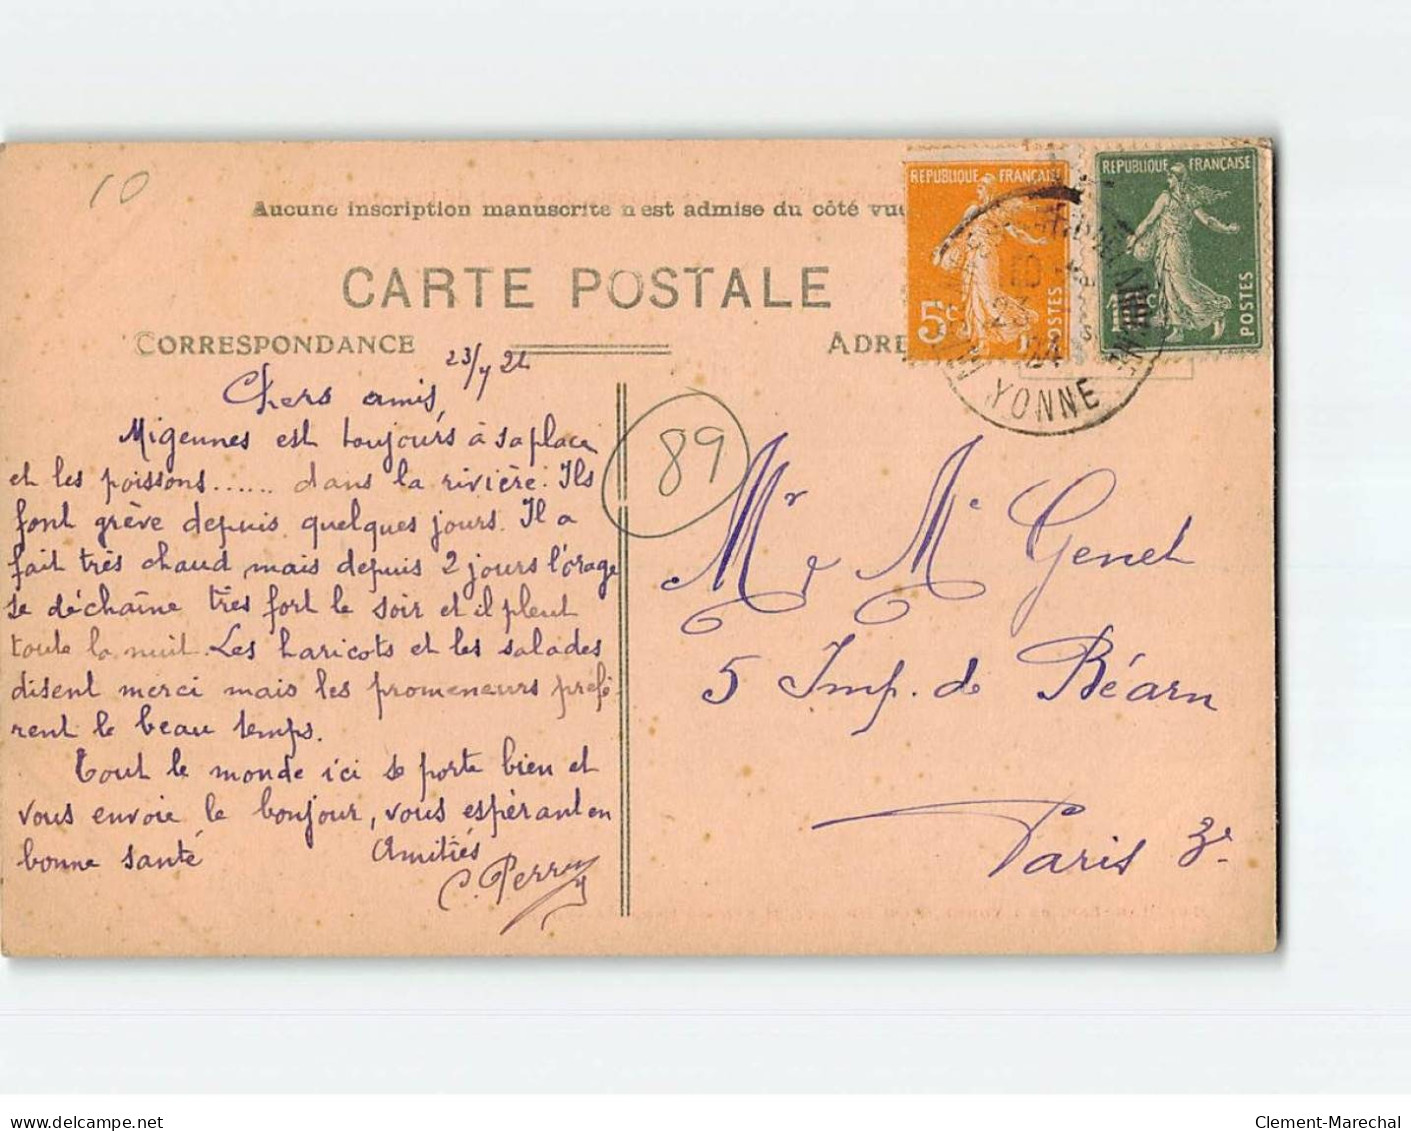 10
Aucune inscription manuscrite n'est admise du côté vue
CARTE POSTALE
CORRESPONDANCE
ADRE
REPUBLIQUE FRANÇAI
5c
POSTES
REPUBLIQUE FRANÇAISE
POSTES
YONNE
23/7 24
Chers amis,
Migennes est toujours à sa place
et les poissons...... dans la rivière. Ils
font grève depuis quelques jours. Il a
fait très chaud, mais depuis 2 jours l'orage
se déchaîne très fort le soir et il pleut
toute la nuit. Les haricots et les salades
disent merci mais les promeneurs préfè-
rent le beau temps.
Tout le monde ici se porte bien et
vous envoie le bonjour, vous espérant en
bonne santé Amitiés
C. Perrey
89
Mr & Me Genet
5 Imp. de Béarn
Paris 3e
www.delcampe.net
Clement-Marechal